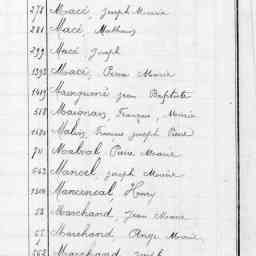 278 Macé, Joseph Marie
281 Macé, Mathurin
299 Macé Joseph
1393 Macé, Pierre Marie
1419 Mainguené Jean Baptiste
518 Maignan, François, Marie
1480 Malin, François Joseph Pierre
711 Malval, Pierre Marie
543 Mancel, Joseph Marie
Mancencal, Henry
52 Marchand, Jean Marie
Marchand, Ange Marie
562 Marchand, Joseph